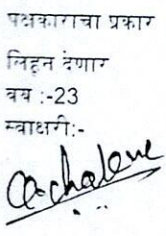 पक्षकाराचा प्रकार
लिहून देणार
वय :-23
स्वाक्षरी:-